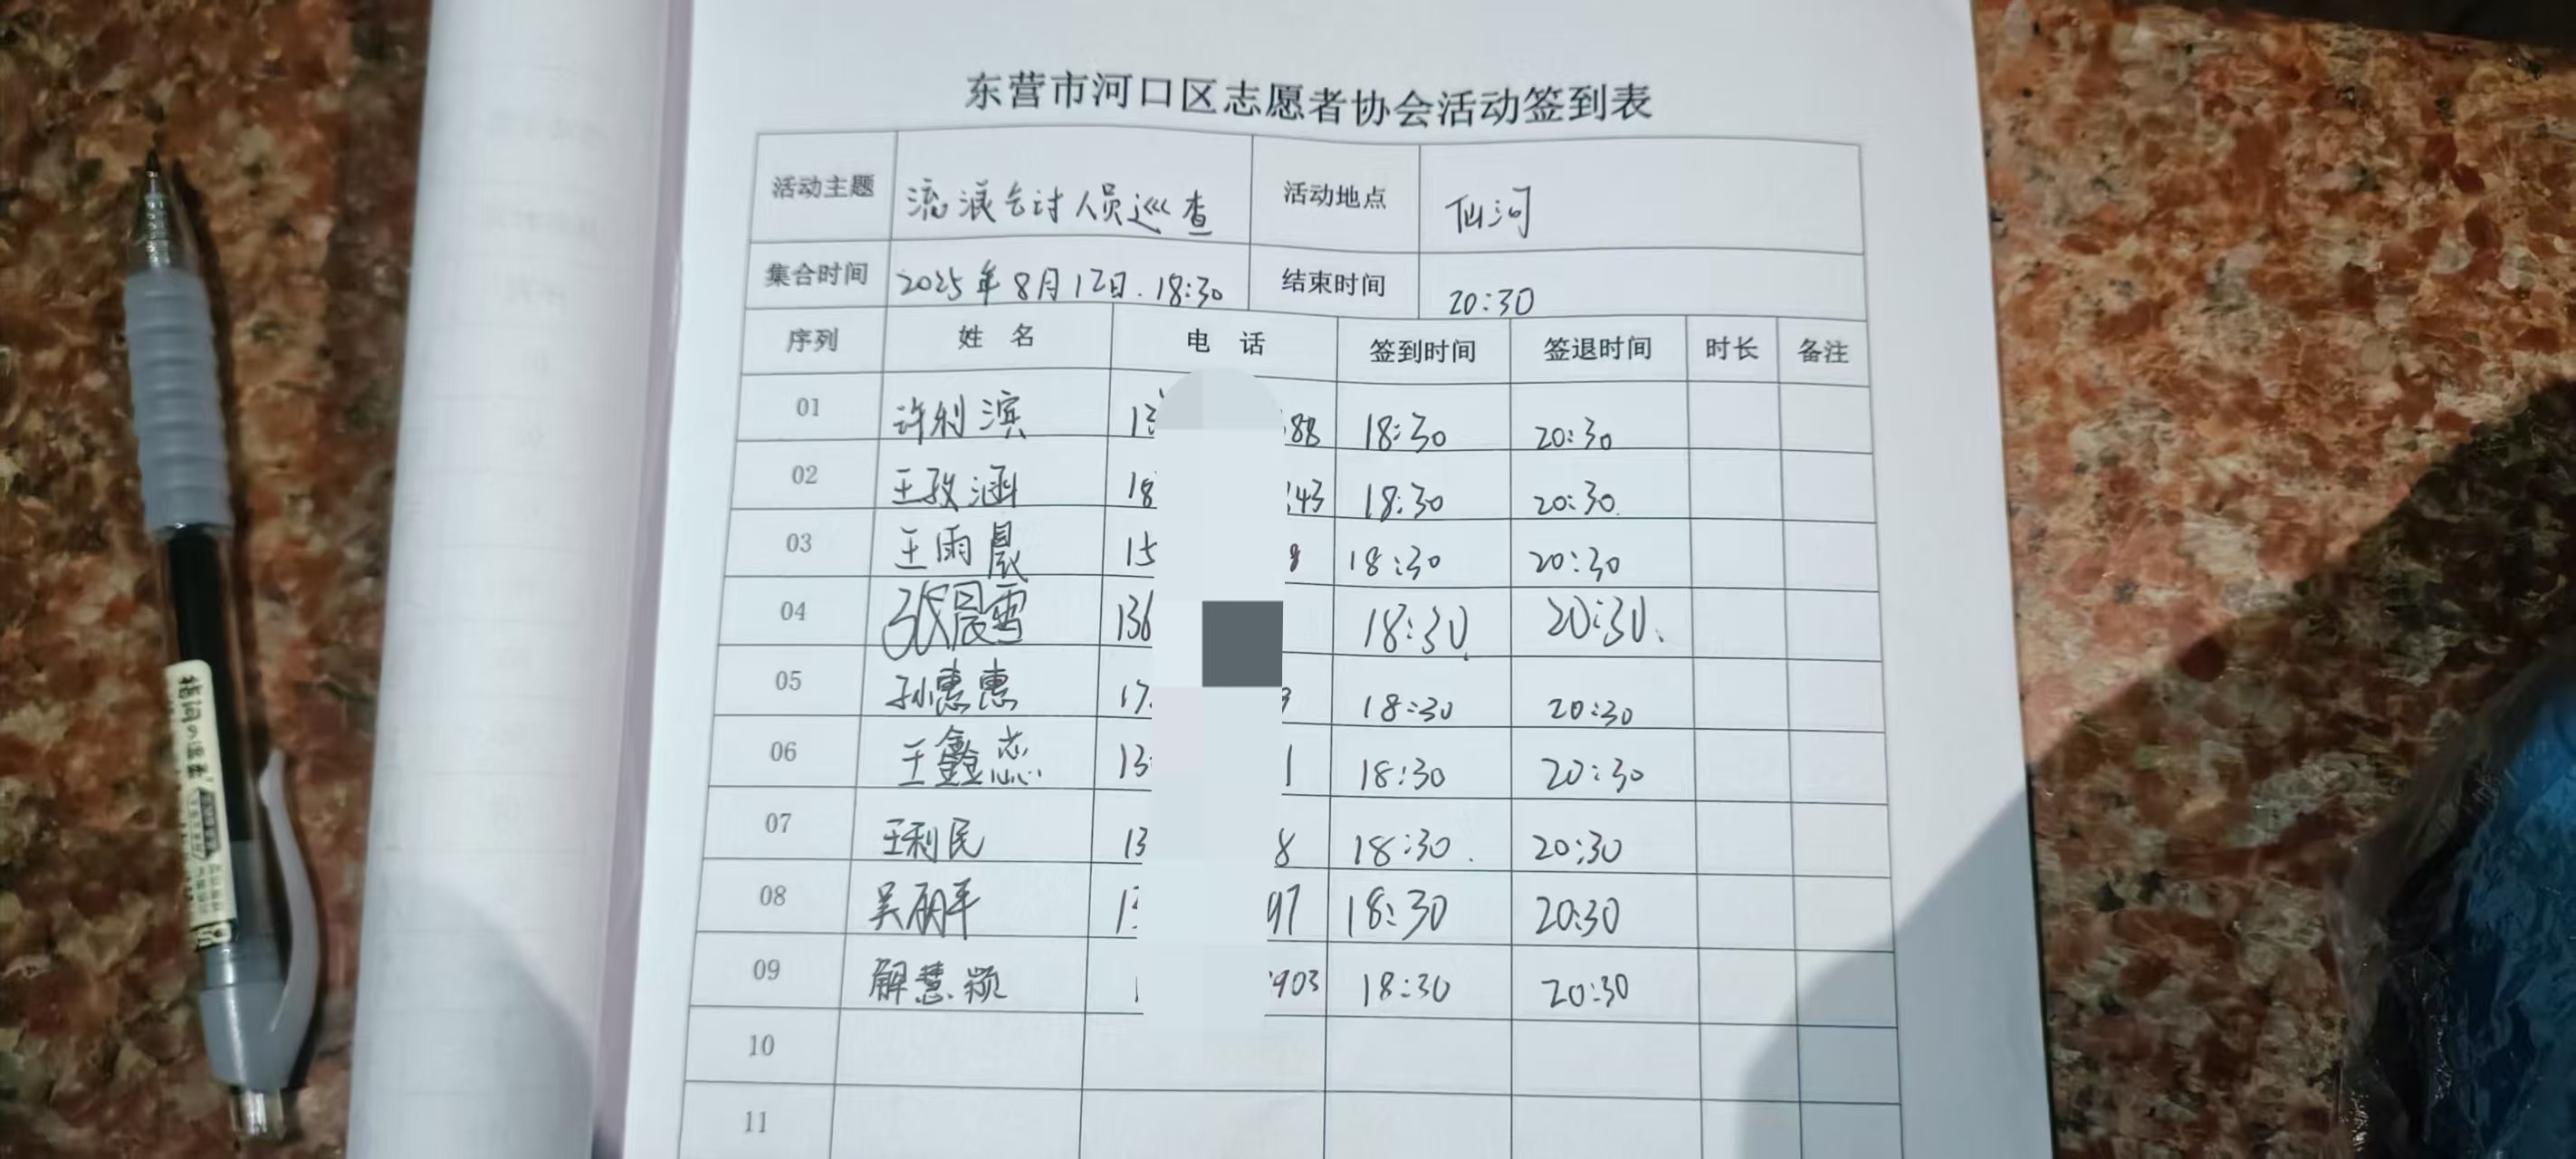 东营市河口区志愿者协会活动签到表
活动主题 流浪乞讨人员巡查 活动地点 仙河
集合时间 2025年8月12日.18:30 结束时间 20:30
序列 姓 名 电 话 签到时间 签退时间 时长 备注
01 许利滨 13 88 18:30 20:30
02 王孜涵 18 43 18:30 20:30
03 王雨晨 15 8 18:30 20:30
04 张晨雪 136 18:30 20:30
05 孙惠惠 17 3 18:30 20:30
06 王鑫蕊 13 1 18:30 20:30
07 王利民 13 8 18:30 20:30
08 吴丽平 1 97 18:30 20:30
09 解慧颖 1 903 18:30 20:30
10
11